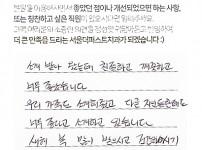 병원을 이용하시면서 좋았던 점이나 개선되었으면 하는 사항,
또는 칭찬하고 싶은 직원이 있으시다면 적어주세요.
더 큰 만족을 드리는 서울더퍼스트치과가 되겠습니다 :)
소개 받아 왔는데 친절하고 깨끗하고
너무 좋았습니다
우리 가족도 소개하고 다들 치료받는데도
너무 좋다고 하고 있습니다.
새해 복 많이 받으시고